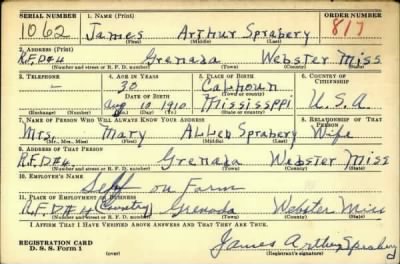 SERIAL NUMBER 1. NAME (Print) ORDER NUMBER
1062 James Arthur Sprabery 817
(First) (Middle) (Last)
2. ADDRESS (Print)
R.F.D#4 Grenada Webster Miss
(Number and street or R. F. D. number) (Town) (County) (State)
3. TELEPHONE 4. AGE IN YEARS 5. PLACE OF BIRTH 6. COUNTRY OF CITIZENSHIP
— 30 Calhoun
DATE OF BIRTH (Town or county)
Aug 10, 1910 Mississppi U.S.A
(Exchange) (Number) (Mo.) (Day) (Yr.) (State or country)
7. NAME OF PERSON WHO WILL ALWAYS KNOW YOUR ADDRESS 8. RELATIONSHIP OF THAT PERSON
Mrs. Mary Allen Sprabery Wife
(Mr., Mrs., Miss) (First) (Middle) (Last)
9. ADDRESS OF THAT PERSON
R.F.D#4. Grenada Webster Miss
(Number and street or R. F. D. number) (Town) (County) (State)
10. EMPLOYER'S NAME
Self on Farm
11. PLACE OF EMPLOYMENT OR BUSINESS
R.F.D#4 (Country) Grenada Webster Miss
(Number and street or R. F. D. number) (Town) (County) (State)
I AFFIRM THAT I HAVE VERIFIED ABOVE ANSWERS AND THAT THEY ARE TRUE.
REGISTRATION CARD
D. S. S. Form 1 James Arthur Sprabery
(over) (Registrant's signature)